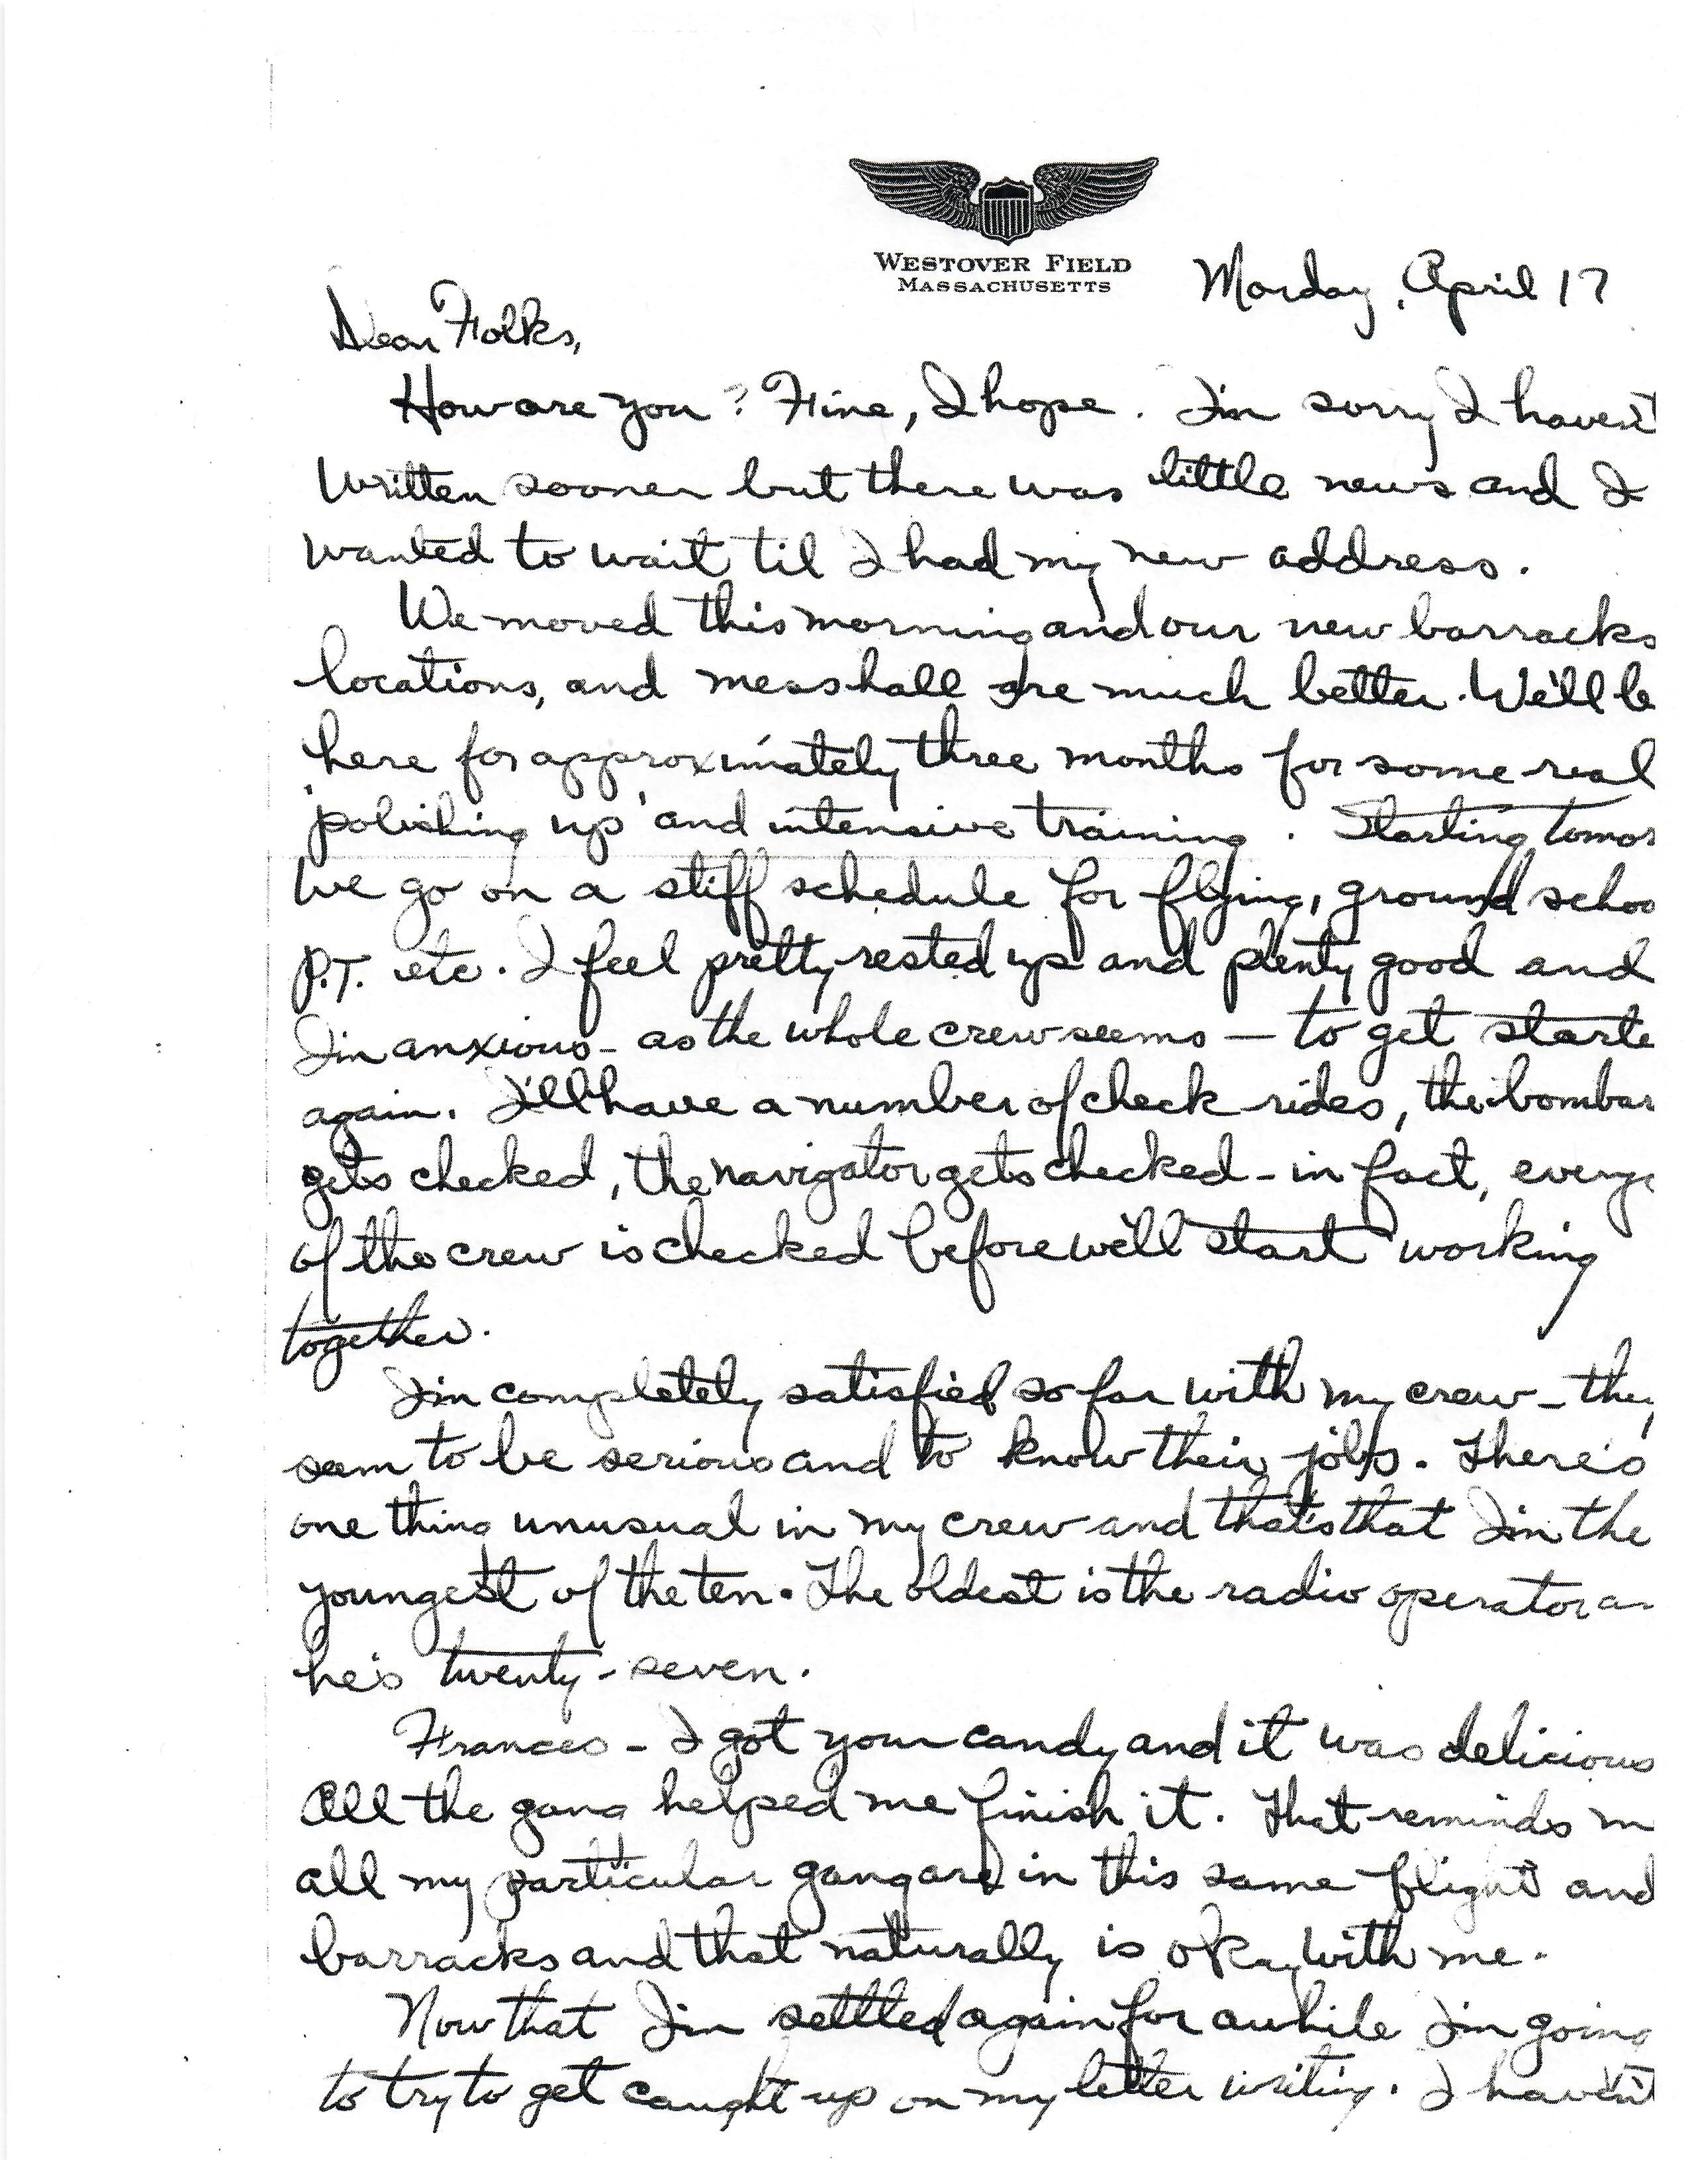 WESTOVER FIELD
MASSACHUSETTS
Monday, April 17
Dear Folks,
How are you? Fine, I hope. I'm sorry I haven't
written sooner but there was little news and I
wanted to wait til I had my new address.
We moved this morning and our new barracks
locations, and mess hall are much better. We'll be
here for approximately three months for some real
'polishing up' and intensive training. Starting tomor
we go on a stiff schedule for flying, ground schoo
P.T. etc. I feel pretty rested up and plenty good and
I'm anxious - as the whole crew seems — to get starte
again. I'll have a number of check rides, the bombar
gets checked, the navigator gets checked - in fact, everyo
of the crew is checked before we'll start working
together.
I'm completely satisfied so far with my crew - they
seem to be serious and to know their jobs. There's
one thing unusual in my crew and that's that I'm the
youngest of the ten. The oldest is the radio operator an
he's twenty-seven.
Frances - I got your candy and it was delicious
All the gang helped me finish it. That reminds m
all my particular gang are in this same flight and
barracks and that naturally is okay with me.
Now that I'm settled again for awhile I'm going
to try to get caught up on my letter writing. I haven't